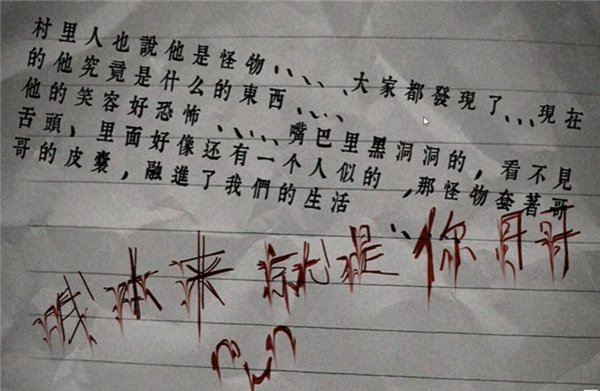 村里人也說他是怪物、、、、、大家都發現了、、、現在
的他究竟是什么的東西、、、、
他的笑容好恐怖、、、、嘴巴里黑洞洞的，看不見
舌頭，里面好像还有一个人似的，那怪物套著哥
哥的皮囊，融進了我們的生活、、
我本来就是你哥哥